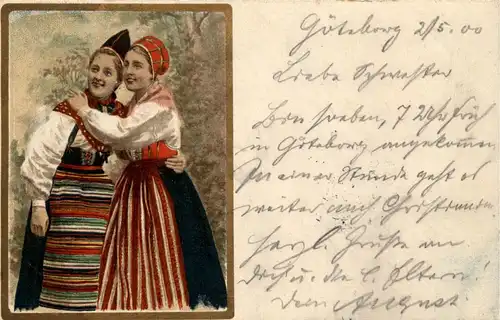 Göteborg 2/5. 00
Liebe Schwester
Bin soeben, 7 Uhr früh
in Göteborg angekommen
In einer Stunde geht es
weiter nach
herzl. Grüße an
dich u. die l. Eltern!
Dein August.